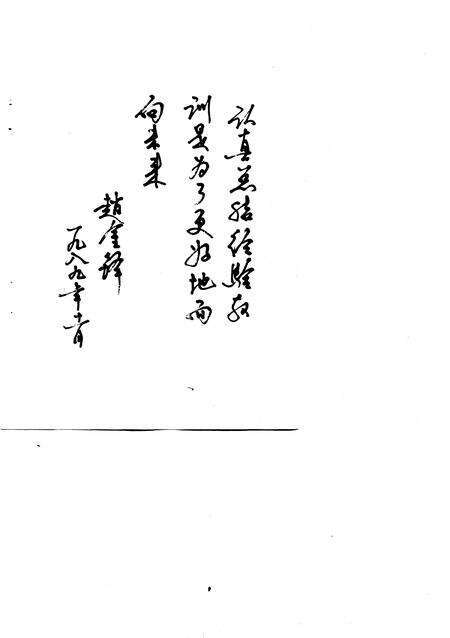 认真总结经验教
训是为了更好地面
向未来
趙金鐸
一九八九年十一月